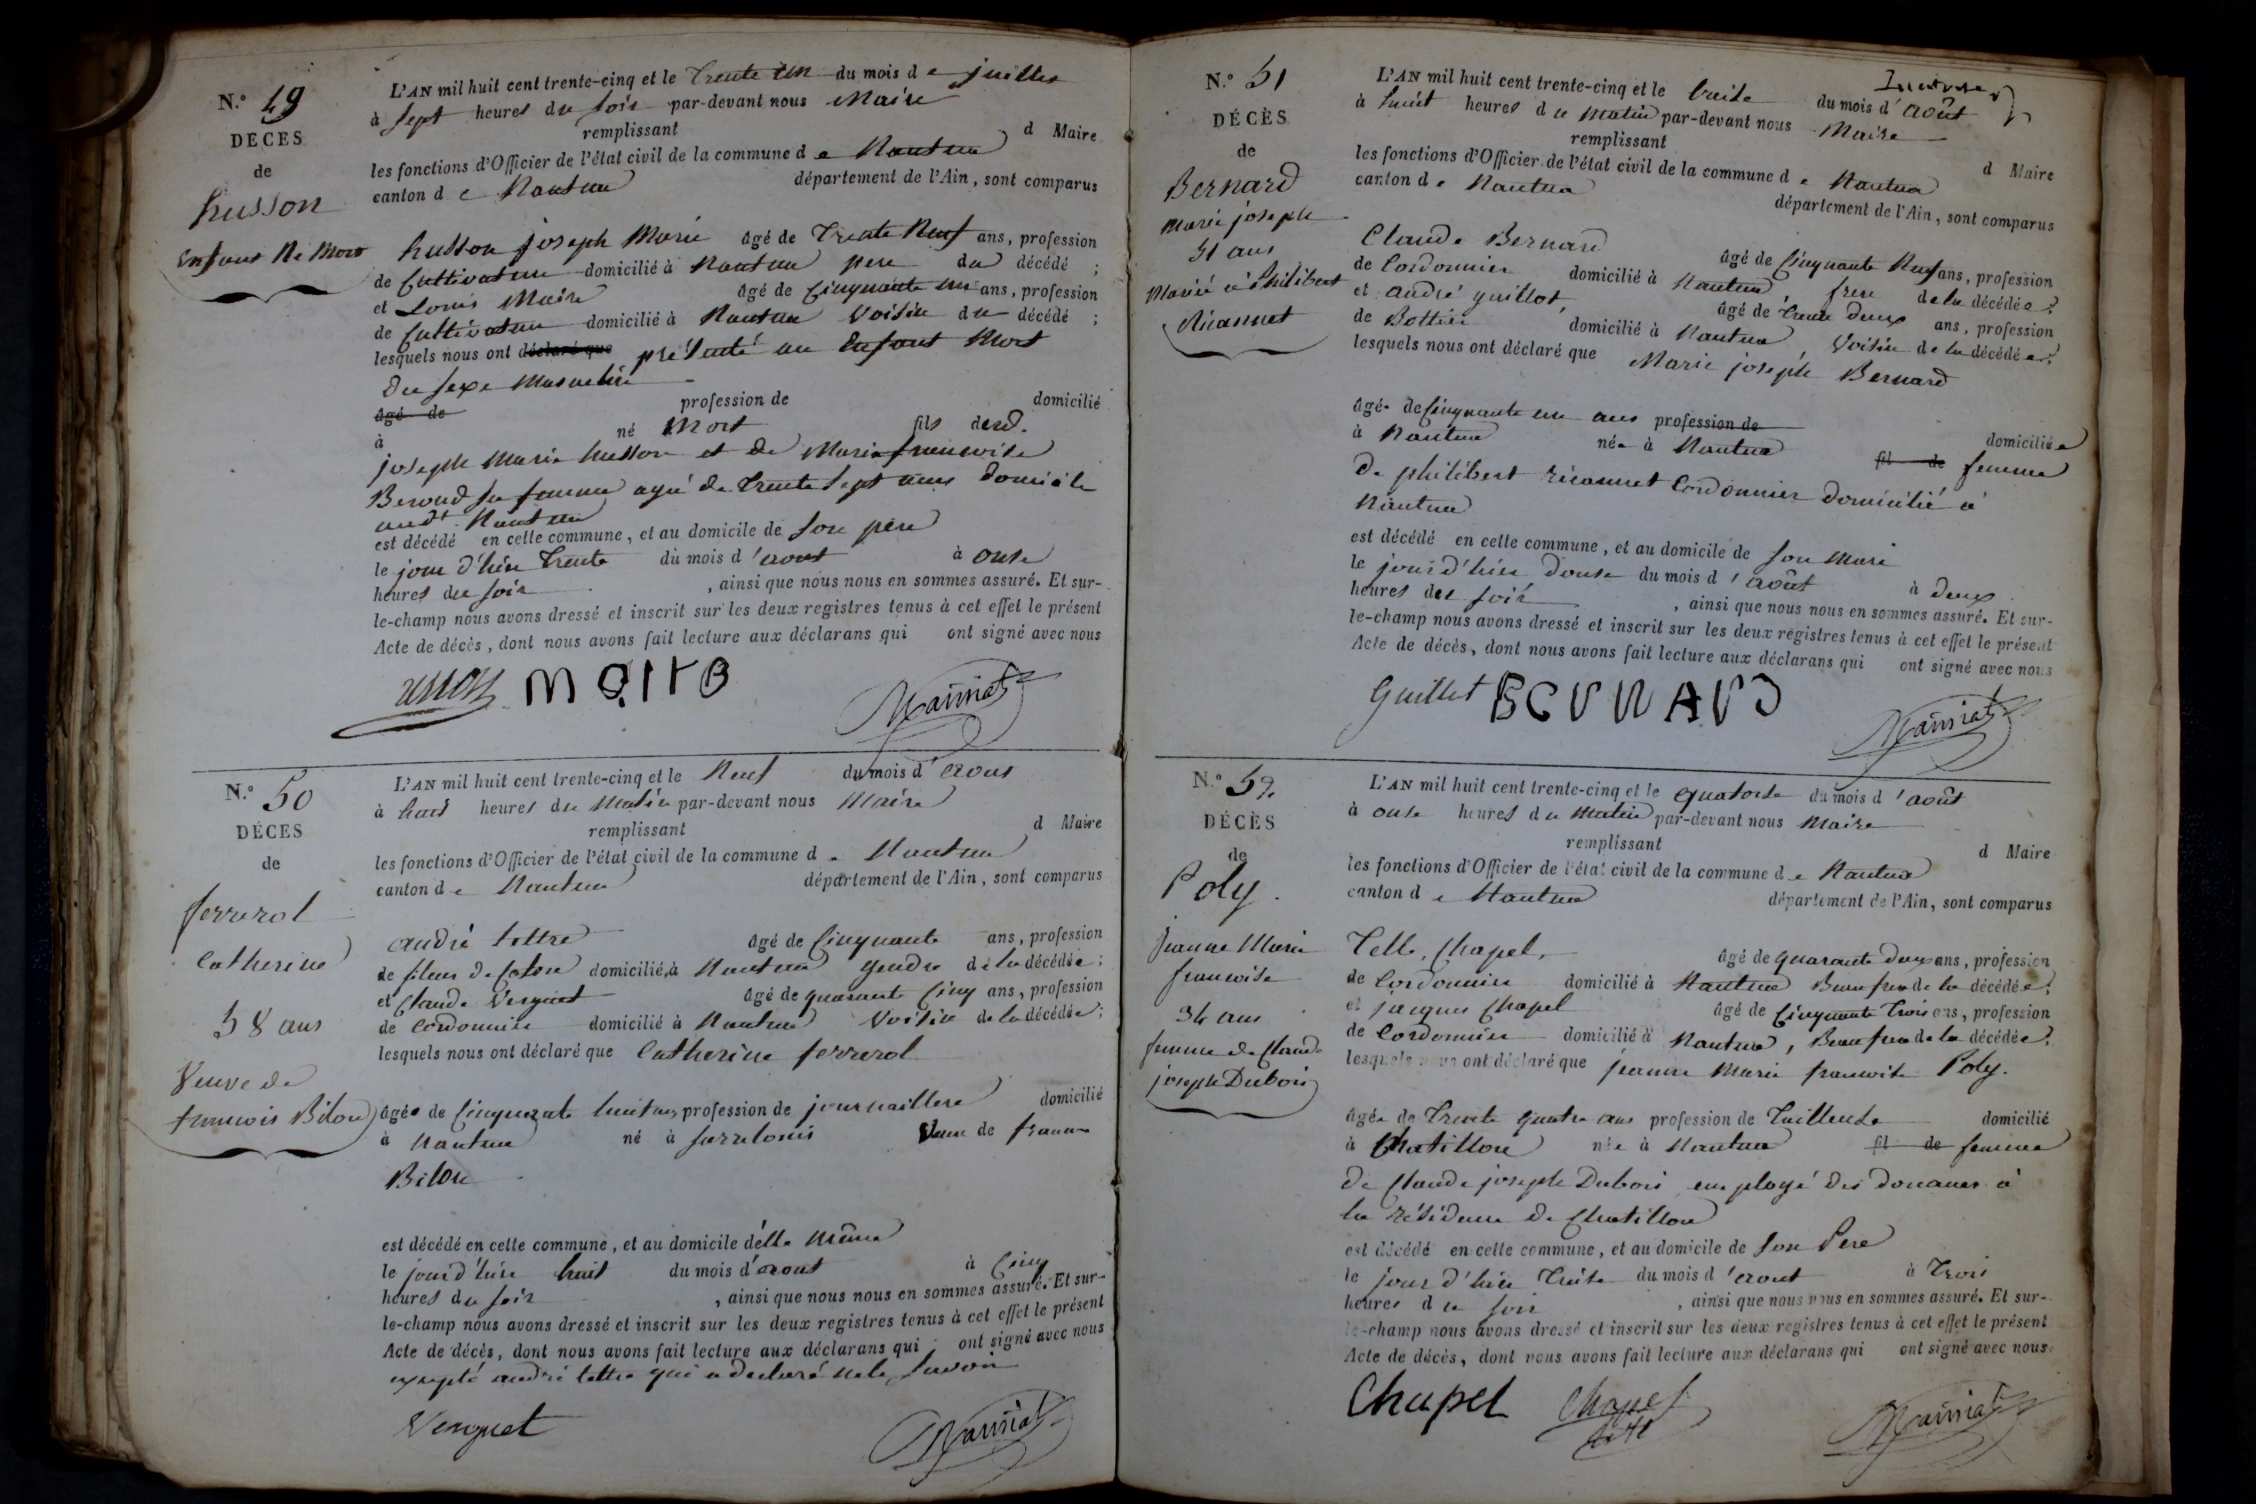 N.° 49
DÉCES
de
husson
Enfant Né Mort
L'AN mil huit cent trente-cinq et le Trente un du mois de juillet
à sept heures du soir par-devant nous Maire
remplissant d Maire
les fonctions d'Officier de l'état civil de la commune de Nantua
canton de Nantua département de l'Ain, sont comparus
husson joseph Marie âgé de Trente Neuf ans, profession
de Cultivateur domicilié à Nantua pere du décédé ;
et Louis Maire âgé de Cinquante un ans, profession
de Cultivateur domicilié à Nantua Voisin du décédé ;
lesquels nous ont déclaré que présenté un Enfant Mort
du sexe Masculin
âgé de profession de domicilié
à né Mort fils dud.
joseph Marie husson et de Marie francoise
Beroud sa femme agé de Trente sept ans domicile
audt Nantua
est décédé en cette commune, et au domicile de son père
le jour d'hier Trente du mois d'aout à onse
heures du soir , ainsi que nous nous en sommes assuré. Et sur-
le-champ nous avons dressé et inscrit sur les deux registres tenus à cet effet le présent
Acte de décès, dont nous avons fait lecture aux déclarans qui ont signé avec nous
N.° 50
DÉCES
de
ferrerol
Catherine
58 ans
Veuve de
francois Bilon
L'AN mil huit cent trente-cinq et le Neuf du mois d'aout
à huit heures du Matin par-devant nous Maire
remplissant d Maire
les fonctions d'Officier de l'état civil de la commune de Nantua
canton de Nantua département de l'Ain, sont comparus
andré tettre âgé de Cinquante ans, profession
de fileur de Coton domicilié à Nantua gendre de la décédée ;
et Claude Verguet âgé de quarante Cinq ans, profession
de Cordonnier domicilié à Nantua Voisin de la décédée ;
lesquels nous ont déclaré que Catherine ferrerol
âgée de Cinquante huit ans profession de journaillere domicilié
à Nantua né à Veuve de francois
Bilon
est décédé en cette commune, et au domicile d'elle même
le jour d'hier huit du mois d'aout à Cinq
heures du soir , ainsi que nous nous en sommes assuré. Et sur-
le-champ nous avons dressé et inscrit sur les deux registres tenus à cet effet le présent
Acte de décès, dont nous avons fait lecture aux déclarans qui ont signé avec nous
excepté andré tettre qui a declaré ne le savoir
Verguet
N.° 51
DÉCÈS
de
Bernard
Marie joseph
51 ans
Mariée à Philibert
Ricannet
L'AN mil huit cent trente-cinq et le treize du mois d'août
à huit heures du Matin par-devant nous Maire
remplissant d Maire
les fonctions d'Officier de l'état civil de la commune de Nantua
canton de Nantua département de l'Ain, sont comparus
Claude Bernard âgé de Cinquante Neuf ans, profession
de Cordonnier domicilié à Nantua frere de la décédée ;
et andré guillot âgé de Trente deux ans, profession
de Bottier domicilié à Nantua Voisin de la décédée ;
lesquels nous ont déclaré que Marie joseph Bernard
âgée de Cinquante un ans profession de domiciliée
à Nantua née à Nantua fil de femme
de philibert ricannet Cordonnier domicilié à
Nantua
est décédé en cette commune, et au domicile de son Mari
le jour d'hier douse du mois d'août à deux
heures du soir , ainsi que nous nous en sommes assuré. Et sur-
le-champ nous avons dressé et inscrit sur les deux registres tenus à cet effet le présent
Acte de décès, dont nous avons fait lecture aux déclarans qui ont signé avec nous
Guillot BERNARD
N.° 52
DÉCÈS
de
Poly
jeanne Marie
francoise
34 ans
femme de Claude
joseph Dubois
L'AN mil huit cent trente-cinq et le quatorse du mois d'août
à onse heures du Matin par-devant nous Maire
remplissant d Maire
les fonctions d'Officier de l'état civil de la commune de Nantua
canton de Nantua département de l'Ain, sont comparus
Chapel âgé de quarante deux ans, profession
de Cordonnier domicilié à Nantua Beaufrere de la décédée ;
et jacques Chapel âgé de Cinquante Trois ans, profession
de Cordonnier domicilié à Nantua, Beaufrere de la décédée ;
lesquels nous ont déclaré que jeanne Marie francoise Poly.
âgée de Trente quatre ans profession de Tailleuse domicilié
à Chatillon née à Nantua fil de femme
de Claude joseph Dubois employé des douanes à
la résidence de Chatillon
est décédé en cette commune, et au domicile de son Pere
le jour d'hier Treise du mois d'aout à Trois
heures du soir , ainsi que nous nous en sommes assuré. Et sur-
le-champ nous avons dressé et inscrit sur les deux registres tenus à cet effet le présent
Acte de décès, dont nous avons fait lecture aux déclarans qui ont signé avec nous.
Chapel Chapel